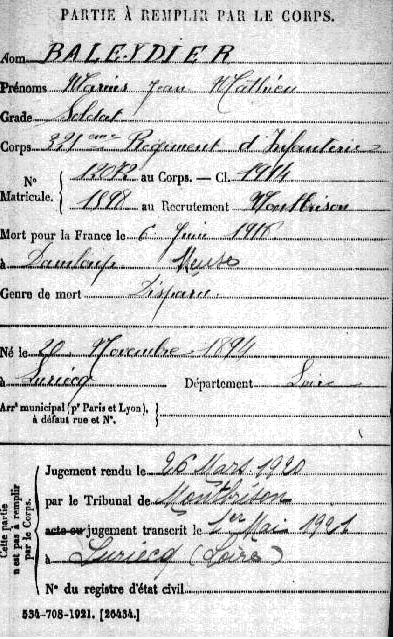 PARTIE À REMPLIR PAR LE CORPS.
Nom BALEYDIER
Prénoms Marius Jean Mathieu
Grade Soldat
Corps 321eme Régiment d'Infanterie
N° 12072 au Corps. — Cl. 1914
Matricule. 1898 au Recrutement Montbrison
Mort pour la France le 6 Juin 1916
à Damloup Meuse
Genre de mort Disparu
Né le 20 Novembre 1894
à Luriecq Département Loire
Arrt municipal (pr Paris et Lyon),
à défaut rue et N°.
Cette partie
n'est pas à remplir
par le Corps.
Jugement rendu le 26 Mars 1920
par le Tribunal de Montbrison
acte ou jugement transcrit le 1er Mai 1921
à Luriecq (Loire)
N° du registre d'état civil
534-708-1921. [26434.]